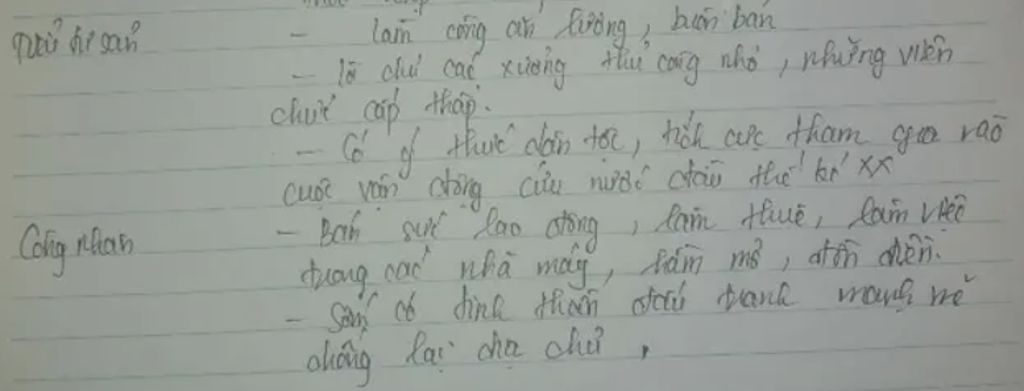 Tiểu tư sản - làm công ăn lương, buôn bán
- là chủ các xưởng thủ công nhỏ, những viên
chức cấp thấp.
- Có ý thức dân tộc, tích cực tham gia vào
cuộc vận động cứu nước đầu thế kỉ XX
Công nhân - Bán sức lao động, làm thuê, làm việc
trong các nhà máy, hầm mỏ, đồn điền.
- Sớm có tinh thần đấu tranh mạnh mẽ
chống lại địa chủ,